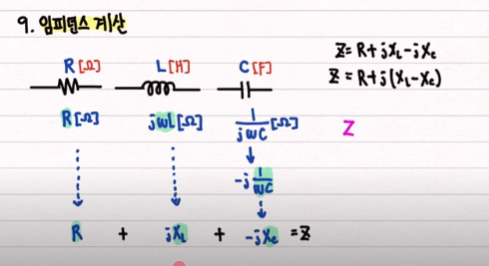 9. 임피던스 계산
R[Ω] L[H] C[F]
Z=R+jXL-jXc
Z=R+j(XL-Xc)
R[Ω] jωL[Ω] 1/jωC[Ω]
Z
-j 1/ωC
R + jXL + -jXc =Z